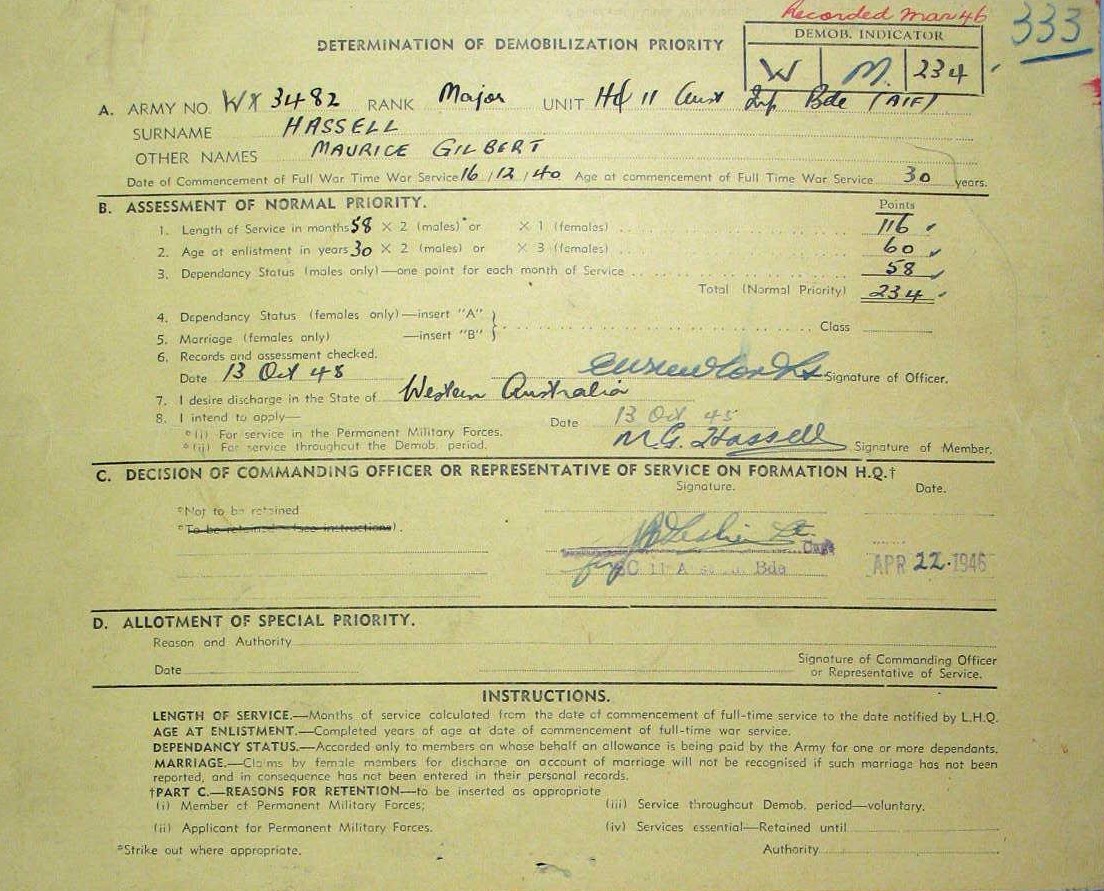 Recorded Mar 46
333
DETERMINATION OF DEMOBILIZATION PRIORITY
DEMOB. INDICATOR
W M. 234
A. ARMY NO. WX 3482 RANK Major UNIT HQ 11 Aust Inf Bde (AIF)
SURNAME HASSELL
OTHER NAMES MAURICE GILBERT
Date of Commencement of Full War Time War Service 16/12/40 Age at commencement of Full Time War Service 30 years.
B. ASSESSMENT OF NORMAL PRIORITY.
Points
1. Length of Service in months 58 × 2 (males) or × 1 (females) 116
2. Age at enlistment in years 30 × 2 (males) or × 3 (females) 60
3. Dependancy Status (males only)—one point for each month of Service 58
Total (Normal Priority) 234
4. Dependancy Status (females only)—insert "A"
5. Marriage (females only) —insert "B"
Class
6. Records and assessment checked.
Date 13 Oct 45 Signature of Officer.
7. I desire discharge in the State of Western Australia
8. I intend to apply— Date 13 Oct 45
*(i) For service in the Permanent Military Forces.
*(ii) For service throughout the Demob. period. M.G. Hassell Signature of Member.
C. DECISION OF COMMANDING OFFICER OR REPRESENTATIVE OF SERVICE ON FORMATION H.Q.†
Signature. Date.
*Not to be retained
*To be retained (see instructions).
Lt.
Capt
Bde APR 22 1946
D. ALLOTMENT OF SPECIAL PRIORITY.
Reason and Authority
Date
Signature of Commanding Officer
or Representative of Service.
INSTRUCTIONS.
LENGTH OF SERVICE.—Months of service calculated from the date of commencement of full-time service to the date notified by L.H.Q.
AGE AT ENLISTMENT.—Completed years of age at date of commencement of full-time war service.
DEPENDANCY STATUS.—Accorded only to members on whose behalf an allowance is being paid by the Army for one or more dependants.
MARRIAGE.—Claims by female members for discharge on account of marriage will not be recognised if such marriage has not been
reported, and in consequence has not been entered in their personal records.
†PART C.—REASONS FOR RETENTION—to be inserted as appropriate
(i) Member of Permanent Military Forces; (iii) Service throughout Demob. period—voluntary.
(ii) Applicant for Permanent Military Forces. (iv) Services essential—Retained until
*Strike out where appropriate. Authority